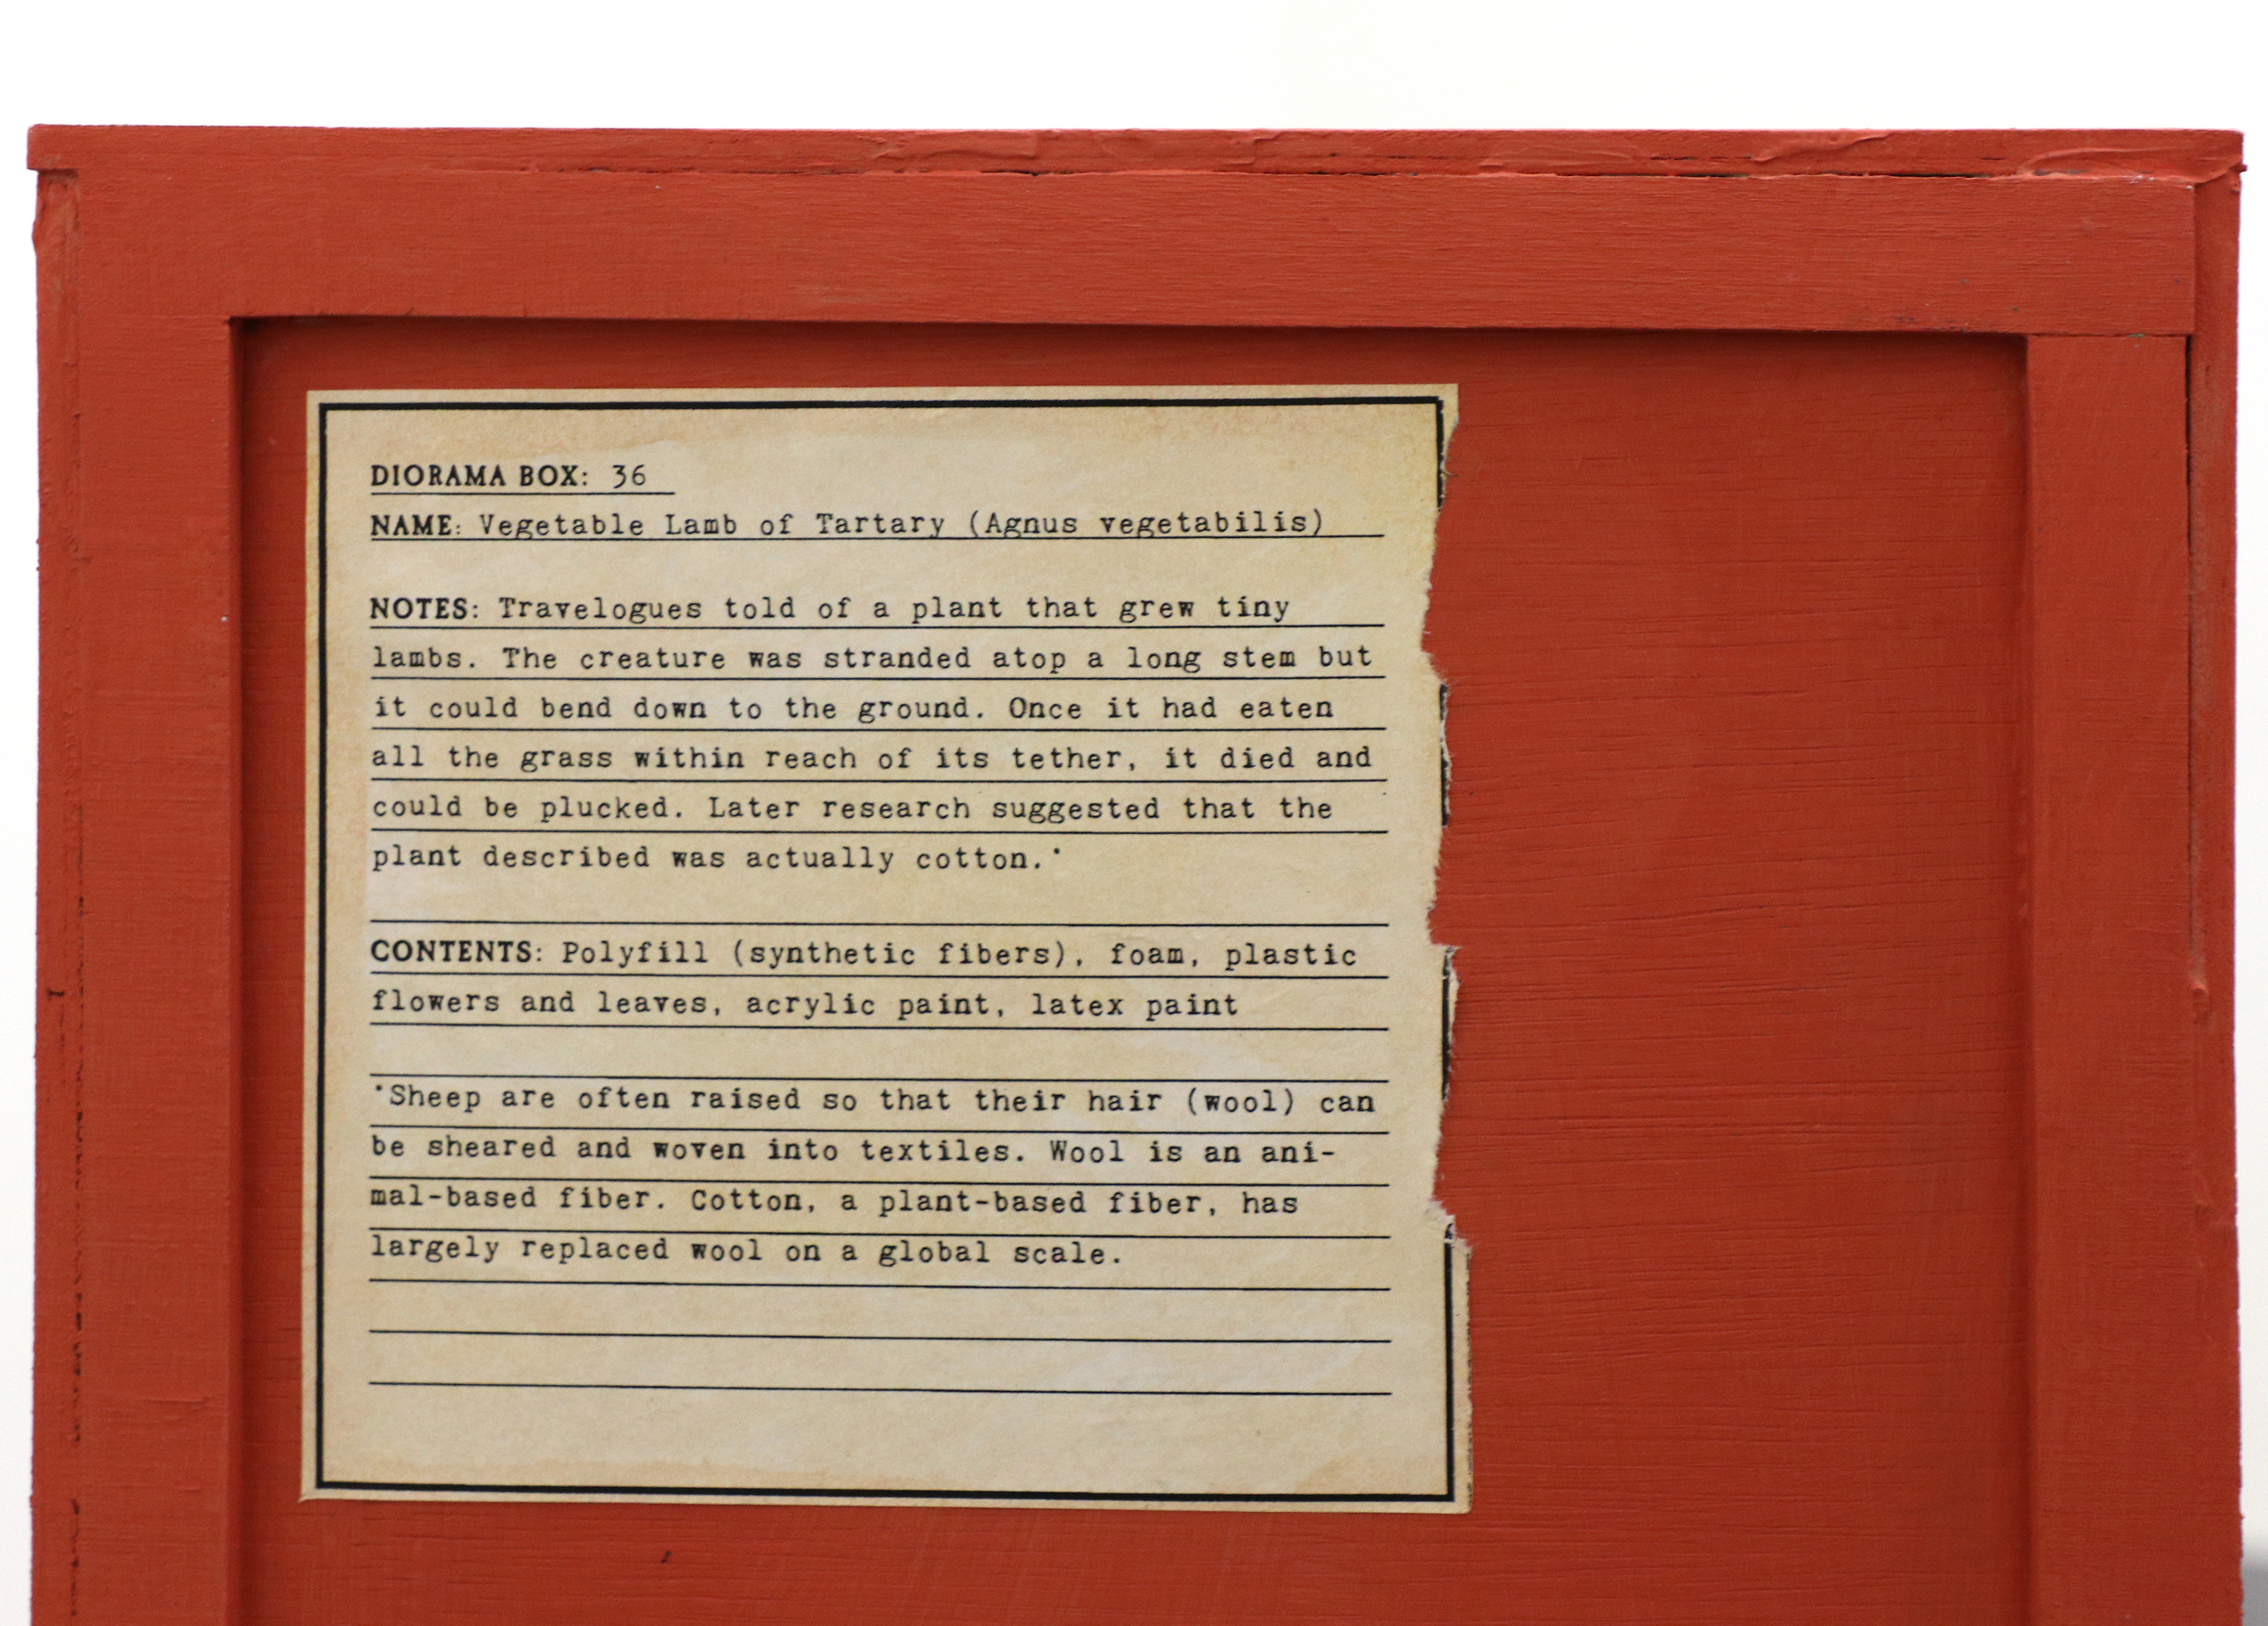 DIORAMA BOX: 36
NAME: Vegetable Lamb of Tartary (Agnus vegetabilis)
NOTES: Travelogues told of a plant that grew tiny
lambs. The creature was stranded atop a long stem but
it could bend down to the ground. Once it had eaten
all the grass within reach of its tether, it died and
could be plucked. Later research suggested that the
plant described was actually cotton.*
CONTENTS: Polyfill (synthetic fibers), foam, plastic
flowers and leaves, acrylic paint, latex paint
*Sheep are often raised so that their hair (wool) can
be sheared and woven into textiles. Wool is an ani-
mal-based fiber. Cotton, a plant-based fiber, has
largely replaced wool on a global scale.